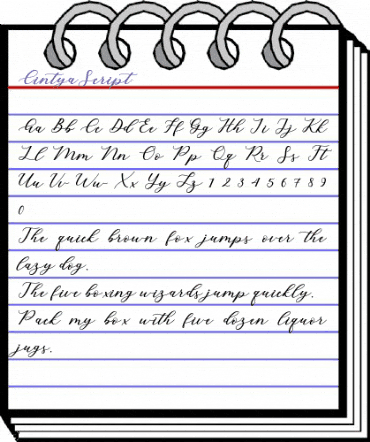 Cintya Script
Aa Bb Cc Dd Ee Ff Gg Hh Ii Jj Kk
Ll Mm Nn Oo Pp Qq Rr Ss Tt
Uu Vv Ww Xx Yy Zz 1 2 3 4 5 6 7 8 9
0
The quick brown fox jumps over the
lazy dog.
The five boxing wizards jump quickly.
Pack my box with five dozen liquor
jugs.